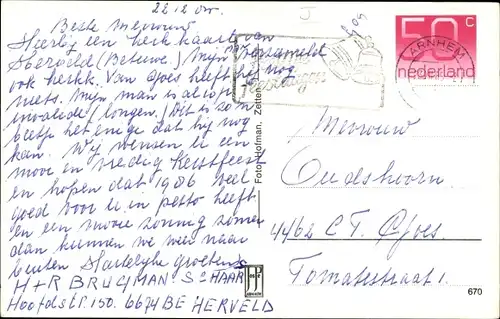 22.12 Uur.
J
Beste Mevrouw
Hierbij een kerk kaart van
Overveld (Betuwe.) Mijn
ook kerkk. Van Goes heeft hij nog
niets. Mijn man is al
invalide (longen.) (Dit is zom
beetje het enige dat hij nog
kan. Wij wensen u een
mooi en vredig kerstfeest
en hopen dat 1986 veel
goed voor u in petto heeft
en een mooie zonnig zomer
dan kunnen we weer naar
buiten Hartelijke groeten
H+R BRUGMAN. S HAAR
Hoofdstr. 150. 6674 BE HERVELD
Foto: Hofman, Zetten
50 c
nederland
ARNHEM
Mevrouw
Oudshoorn
4462 CT. Goes.
Tomatestraat 1.
670